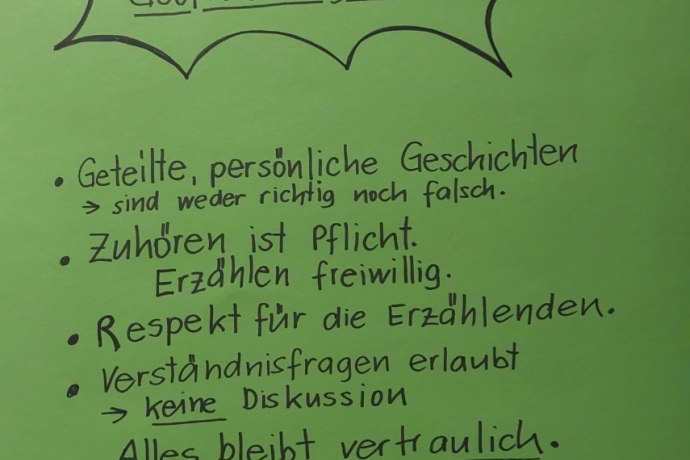 • Geteilte, persönliche Geschichten
→ sind weder richtig noch falsch.
• Zuhören ist Pflicht.
Erzählen freiwillig.
• Respekt für die Erzählenden.
• Verständnisfragen erlaubt
→ keine Diskussion
Alles bleibt vertraulich.